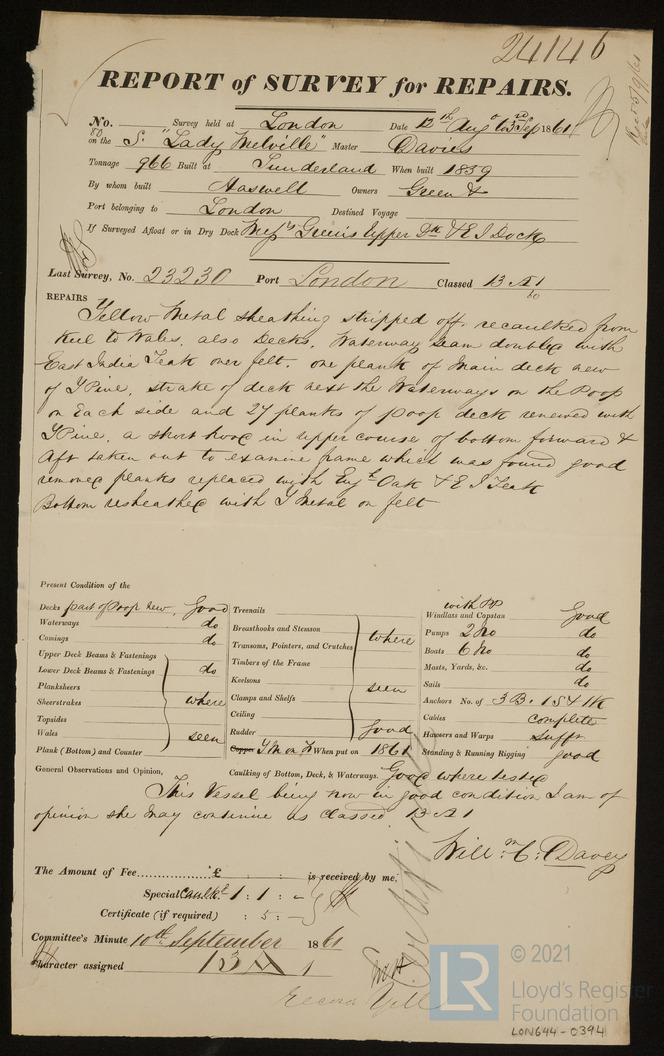 24146
REPORT of SURVEY for REPAIRS.
No. Survey held at London Date 12th Augo to 3rd Sep 1861
80
on the S. "Lady Melville" Master Davies
Tonnage 966 Built at Sunderland When built 1839
By whom built Haswell Owners Green &
Port belonging to London Destined Voyage
If Surveyed Afloat or in Dry Dock Messrs Green's Upper Dk & E I Dock
Last Survey, No. 23230 Port London Classed 13 A 1
60
REPAIRS Yellow Metal sheathing stripped off, recaulked from
keel to Wales, also Decks. Waterway seam doubled with
East India Teak over felt. one plank of Main deck new
of Y Pine, strake of deck next the Waterways on the Poop
on Each side and 27 planks of poop deck renewed with
Y Pine, a short hood in upper course of bottom forward &
Aft taken out to examine frame which was found good
removed planks replaced with Engh Oak & E I Teak
Bottom resheathed with Y Metal on felt
Present Condition of the
Decks part of Poop new, Good
Waterways do
Comings do
Upper Deck Beams & Fastenings
Lower Deck Beams & Fastenings do
Planksheers
Sheerstrakes where
Topsides
Wales seen
Plank (Bottom) and Counter
Treenails
Breasthooks and Stemson
Transoms, Pointers, and Crutches where
Timbers of the Frame
Keelsons seen
Clamps and Shelfs
Ceiling
Rudder Good
Copper Y M on F When put on 1861
with PP
Windlass and Capstan Good
Pumps 2 No do
Boats 6 No do
Masts, Yards, &c. do
Sails do
Anchors No. of 3 B. 1 S & 1 K
Cables complete
Hawsers and Warps sufft
Standing & Running Rigging good
General Observations and Opinion, Caulking of Bottom, Deck, & Waterways. Good where tested
This Vessel being now in good condition I am of
opinion she may continue as classed 13 A 1
Willm C: Davey
The Amount of Fee £ : : is received by me,
Special Caulkg 1 : 1 : -
Certificate (if required) : 5 : -
Committee's Minute 10th September 1861
Character assigned 13 A 1
Record Yell
LR
© 2021
Lloyd's Register
Foundation
LON644-0394